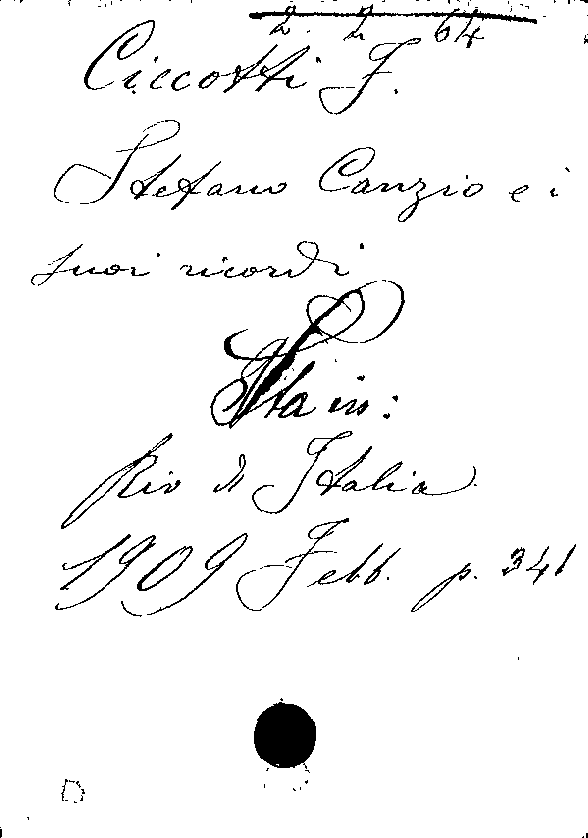 2. 2 64
Ciccotti F.
Stefano Canzio e i
suoi ricordi
Sta in:
Riv di Italia
1909 Febb. p. 341
D